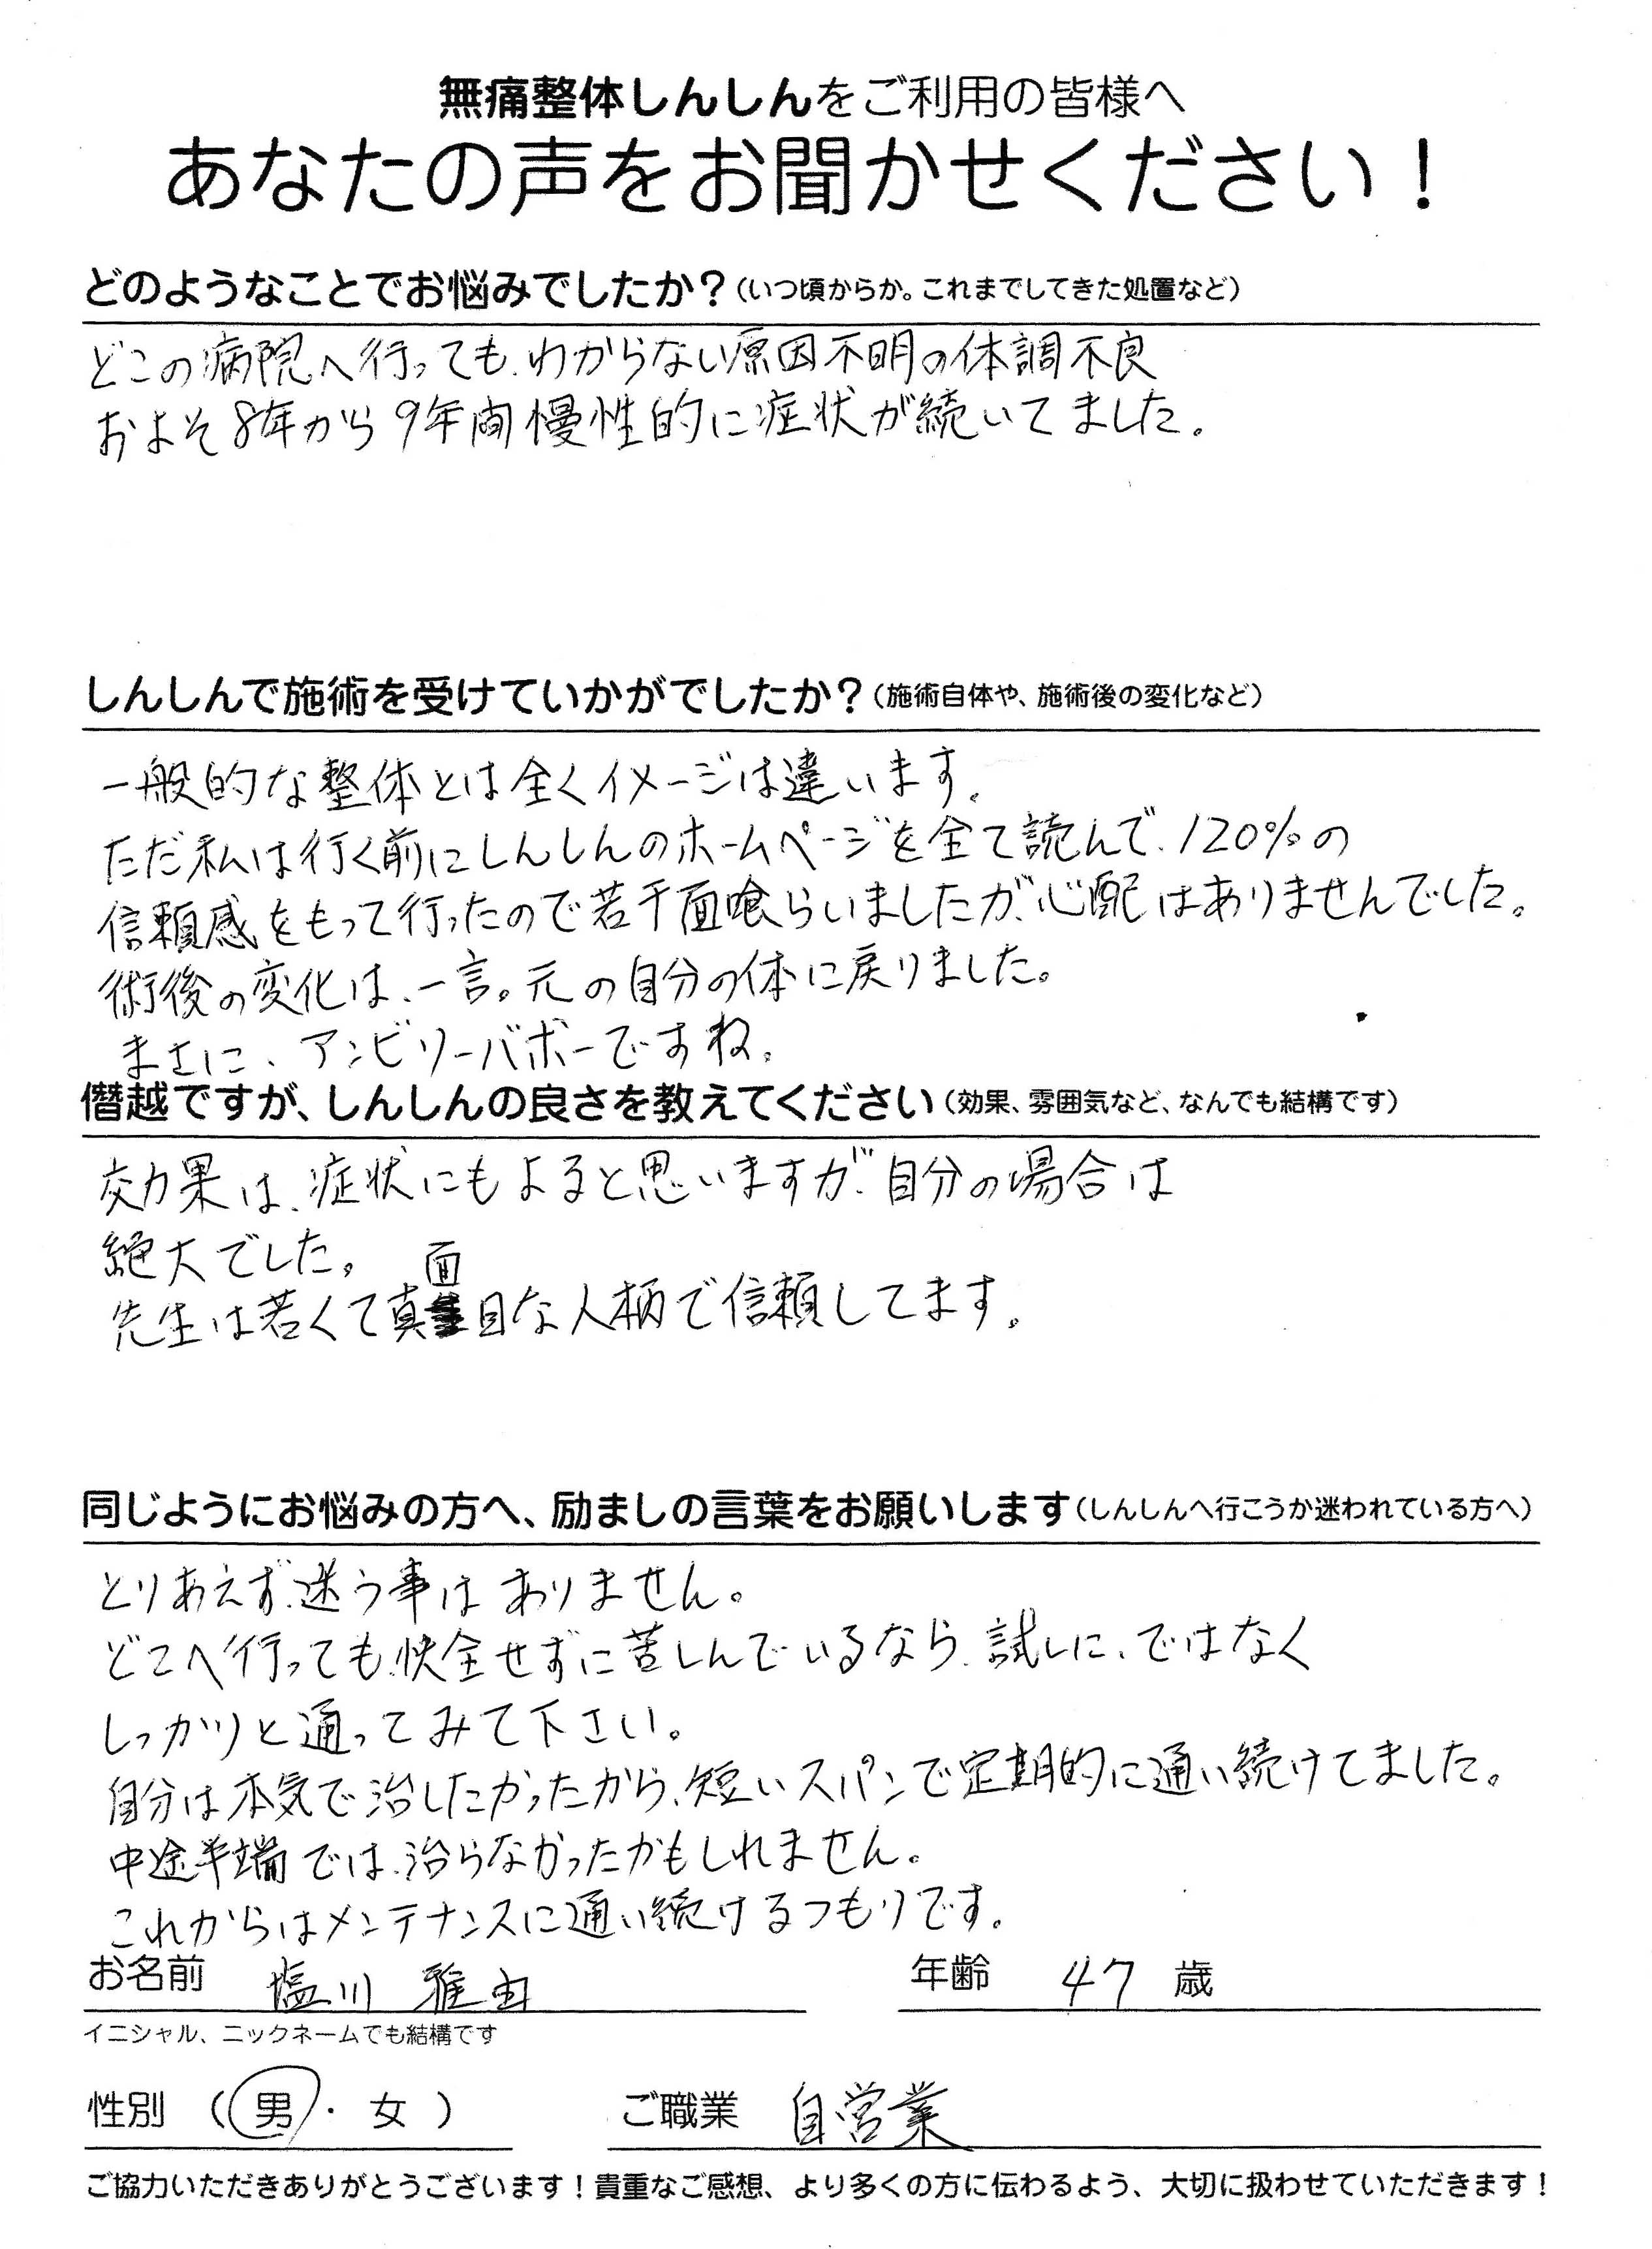 無痛整体しんしんをご利用の皆様へ
あなたの声をお聞かせください！
どのようなことでお悩みでしたか？（いつ頃からか。これまでしてきた処置など）
どこの病院へ行っても、わからない原因不明の体調不良
およそ8年から9年間慢性的に症状が続いてました。
しんしんで施術を受けていかがでしたか？（施術自体や、施術後の変化など）
一般的な整体とは全くイメージは違います。
ただ私は行く前にしんしんのホームページを全て読んで、120%の
信頼感をもって行ったので若干面喰らいましたが、心配はありませんでした。
術後の変化は、一言。元の自分の体に戻りました。
まさに、アンビリーバボーですね。
僭越ですが、しんしんの良さを教えてください（効果、雰囲気など、なんでも結構です）
効果は、症状にもよると思いますが、自分の場合は
絶大でした。
先生は若くて真面目な人柄で信頼してます。
同じようにお悩みの方へ、励ましの言葉をお願いします（しんしんへ行こうか迷われている方へ）
とりあえず、迷う事はありません。
どこへ行っても、快全せずに苦しんでいるなら、試しに、ではなく
しっかりと通ってみて下さい。
自分は本気で治したかったから、短いスパンで定期的に通い続けてました。
中途半端では、治らなかったかもしれません。
これからはメンテナンスに通い続けるつもりです。
お名前 塩川 雅由 年齢 47 歳
イニシャル、ニックネームでも結構です
性別 （男・女） ご職業 自営業
ご協力いただきありがとうございます！貴重なご感想、より多くの方に伝わるよう、大切に扱わせていただきます！